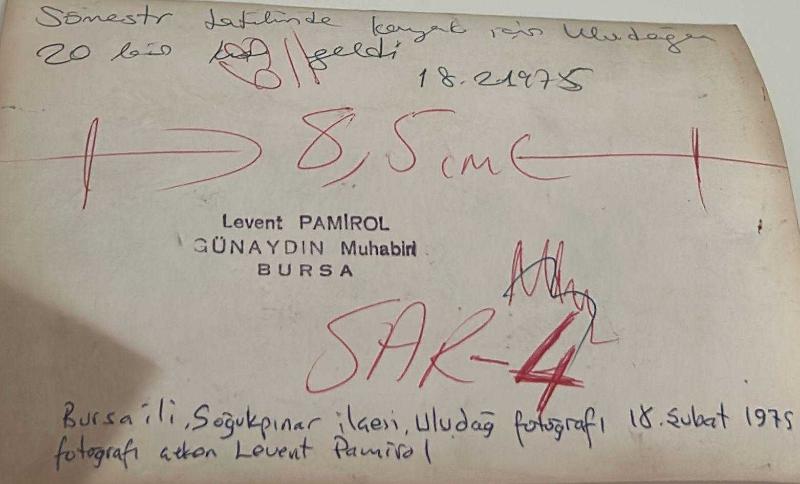 Sömestr tatilinde kayak için Uludağa
20 bin geldi
18.2.1975
8,5 cm
Levent PAMİROL
GÜNAYDIN Muhabiri
BURSA
SAR-4
Bursa ili, Soğukpınar ilçesi, Uludağ fotoğrafı 18.Şubat 1975
fotoğrafı çeken Levent Pamirol